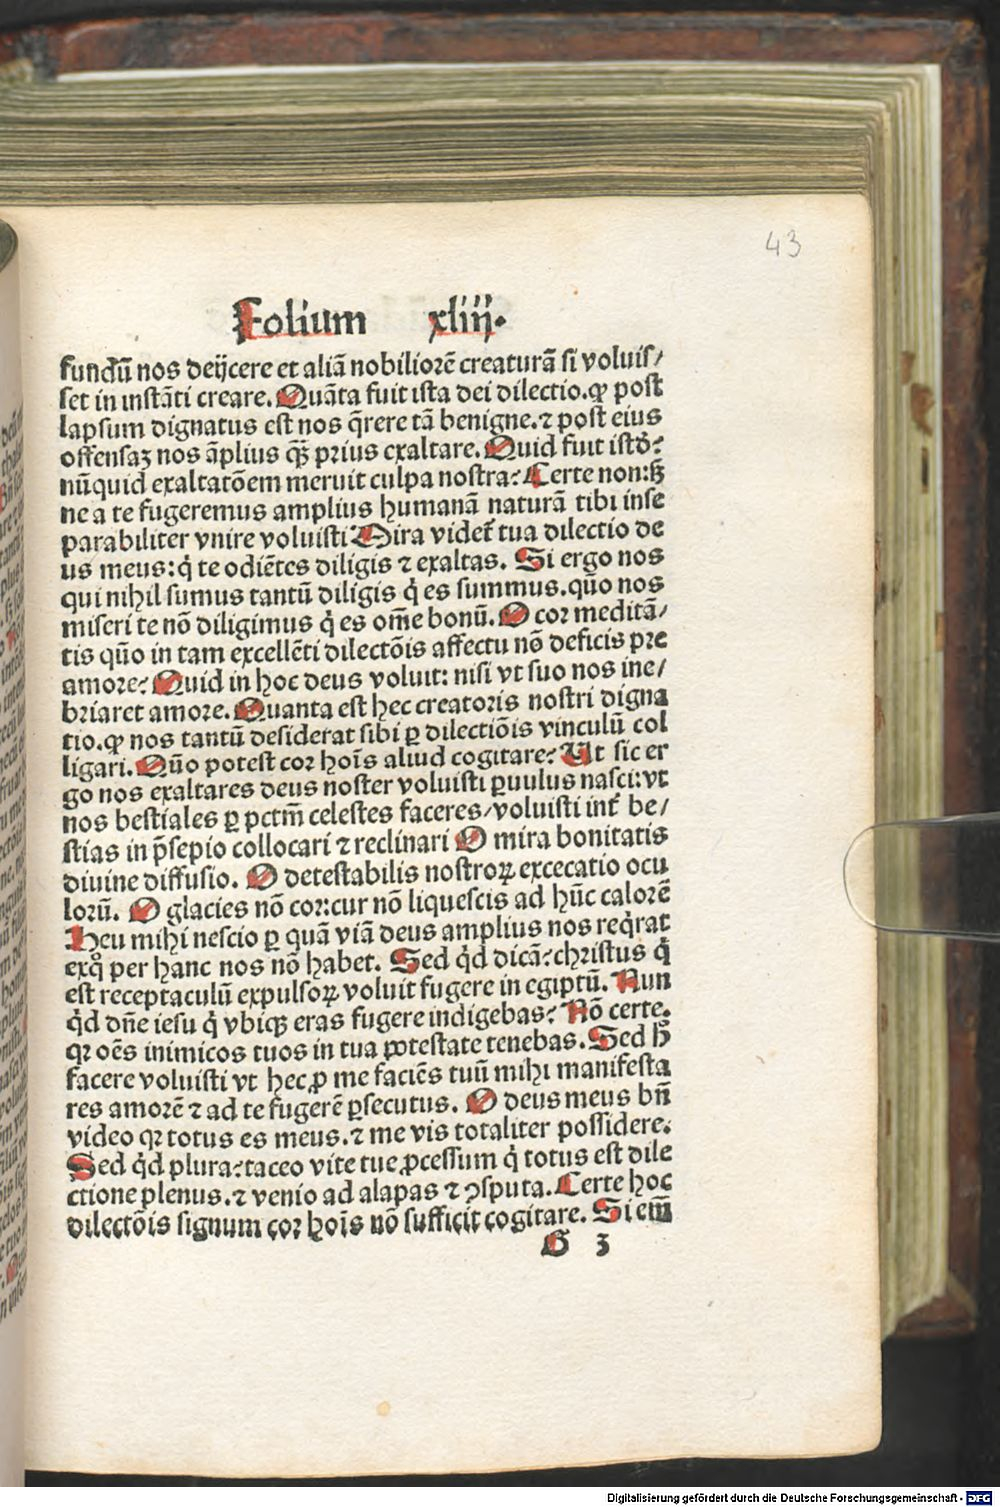 43
Folium xliij.
fundũ nos deijcere et aliã nobiliorẽ creaturã si voluis/
set in instãti creare. Quãta fuit ista dei dilectio. ꝙ post
lapsum dignatus est nos q̃rere tã benigne. ⁊ post eius
offensaʒ nos ãplius qꝫ̃ prius exaltare. Quid fuit istð?
nũquid exaltatõem meruit culpa nostra? Certe non: sꝫ
ne a te fugeremus amplius humanã naturã tibi inse
parabiliter vnire voluisti Mira videt̃ tua dilectio de
us meus: q̇ te odiẽtes diligis ⁊ exaltas. Si ergo nos
qui nihil sumus tantũ diligis q̇ es summus. quõ nos
miseri te nõ diligimus q̇ es om̃e bonũ. O cor meditã/
tis quõ in tam excellẽti dilectõis affectu nõ deficis pre
amore? Quid in hoc deus voluit: nisi vt suo nos ine/
briaret amore. Quanta est hec creatoris nostri digna
tio. ꝙ nos tantũ desiderat sibi ꝑ dilectiõis vinculũ col
ligari. Quõ potest cor hoĩs aliud cogitare? Ut sic er
go nos exaltares deus noster voluisti ꝑuulus nasci: vt
nos bestiales ꝑ pctm̃ celestes faceres/ voluisti int̃ be/
stias in p̃sepio collocari ⁊ reclinari O mira bonitatis
diuine diffusio. O detestabilis nostroꝝ excecatio ocu
lorũ. O glacies nõ cor: cur nõ liquescis ad hũc calorẽ
Heu mihi nescio ꝑ quã viã deus amplius nos req̇rat
exq̊ per hanc nos nõ habet. Sed q̇d dicã? christus q̇
est receptaculũ expulsoꝝ voluit fugere in egiptũ. Nun
q̇d dñe iesu q̇ vbiqꝫ eras fugere indigebas? Nõ certe.
qꝛ oẽs inimicos tuos in tua potestate tenebas. Sed h̃
facere voluisti vt hec ꝓ me faciẽs tuũ mihi manifesta
res amorẽ ⁊ ad te fugerẽ ꝑsecutus. O deus meus bñ
video qꝛ totus es meus. ⁊ me vis totaliter possidere.
Sed q̇d plura? taceo vite tue ꝓcessum q̇ totus est dile
ctione plenus. ⁊ venio ad alapas ⁊ ꝯsputa. Certe hoc
dilectõis signum cor hoĩs nõ sufficit cogitare. Si em̃
G 3
Digitalisierung gefördert durch die Deutsche Forschungsgemeinschaft - DFG